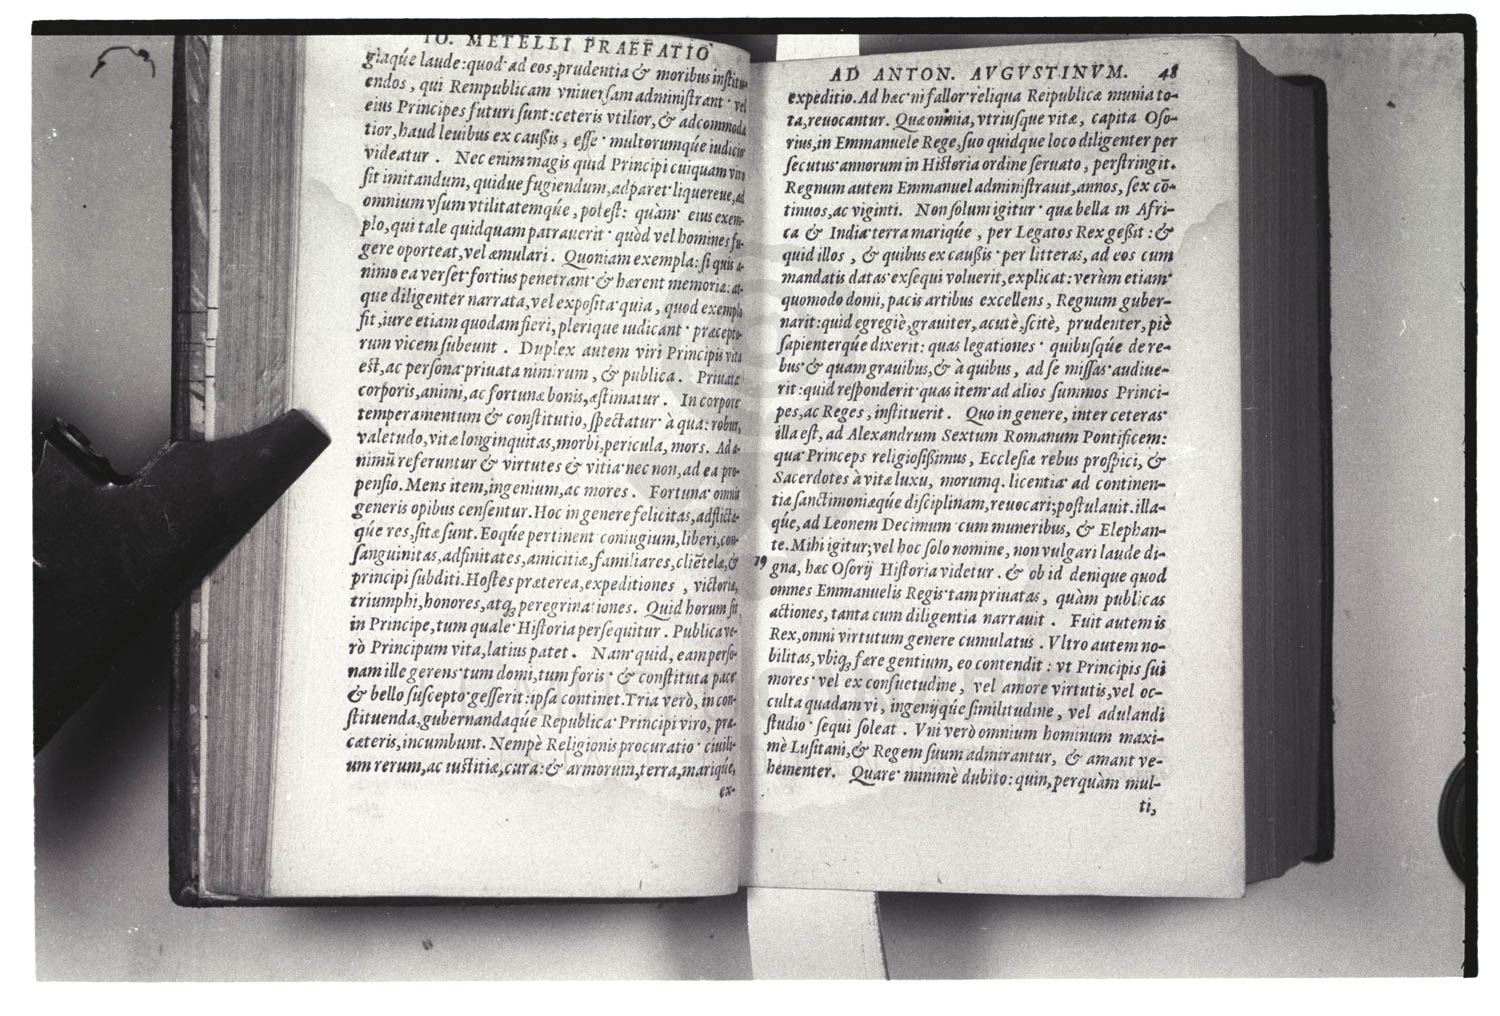 IO. METELLI PRAEFATIO
giaqúe laude: quod ad eos, prudentia & moribus institu-
endos, qui Rempublicam vniuersam administrant vel
eius Principes futuri sunt: ceteris vtilior, & adcommoda
tior, haud leuibus ex caußis, esse multorumqúe iudicio
videatur. Nec enim magis quid Principi cuiquam viro
sit imitandum, quidue fugiendum, adparet liquereue, ad
omnium vsum vtilitatemqúe, potest: quàm eius exem-
plo, qui tale quidquam patrauerit quòd vel homines fu-
gere oporteat, vel æmulari. Quoniam exempla: si quis a-
nimo ea verset fortius penetrant & hærent memoria: at-
que diligenter narrata, vel exposita quia, quod exemplo
fit, iure etiam quodam fieri, plerique iudicant præcepto-
rum vicem subeunt. Duplex autem viri Principis vita
est, ac persona priuata nimirum, & publica. Priuata
corporis, animi, ac fortunæ bonis, æstimatur. In corpore
temperamentum & constitutio, spectatur à qua: robur,
valetudo, vitæ longinquitas, morbi, pericula, mors. Ad a-
nimū referuntur & virtutes & vitia nec non, ad ea pro-
pensio. Mens item, ingenium, ac mores. Fortuna omnis
generis opibus censentur. Hoc in genere felicitas, adflictæ-
qúe res, sitæ sunt. Eoqúe pertinent coniugium, liberi, con-
sanguinitas, adfinitates, amicitiæ, familiares, cliētelæ, &
principi subditi. Hostes præterea, expeditiones, victoria,
triumphi, honores, atq; peregrinationes. Quid horum sit
in Principe, tum quale Historia persequitur. Publica ve-
rò Principum vita, latius patet. Nam quid, eam perso-
nam ille gerens tum domi, tum foris & constituta pace
& bello suscepto gesserit: ipsa continet. Tria verò, in con-
stituenda, gubernandaqúe Republica Principi viro, præ-
cæteris, incumbunt. Nempè Religionis procuratio ciuili-
um rerum, ac iustitiæ, cura: & armorum, terra, mariqúe,
ex-
AD ANTON. AVGVSTINVM. 48
expeditio. Ad hæc ni fallor reliqua Reipublicæ munia to-
ta, reuocantur. Quæ omnia, vtriusque vitæ, capita Oso-
rius, in Emmanuele Rege, suo quidque loco diligenter per
secutus annorum in Historia ordine seruato, perstringit.
Regnum autem Emmanuel administrauit, annos, sex cō-
tinuos, ac viginti. Non solum igitur quæ bella in Afri-
ca & India terra mariqúe, per Legatos Rex geßit: &
quid illos, & quibus ex caußis per litteras, ad eos cum
mandatis datas exsequi voluerit, explicat: verùm etiam
quomodo domi, pacis artibus excellens, Regnum guber-
narit: quid egregiè, grauiter, acutè, scitè, prudenter, piè
sapienterqúe dixerit: quas legationes quibusqúe de re-
bus & quam grauibus, & à quibus, ad se missas audiue-
rit: quid responderit quas item ad alios summos Princi-
pes, ac Reges, instituerit. Quo in genere, inter ceteras
illa est, ad Alexandrum Sextum Romanum Pontificem:
qua Princeps religiosißimus, Ecclesiæ rebus prospici, &
Sacerdotes à vitæ luxu, morumq. licentia ad continen-
tiæ sanctimoniæqúe disciplinam, reuocari; postulauit. illa-
qúe, ad Leonem Decimum cum muneribus, & Elephan-
te. Mihi igitur; vel hoc solo nomine, non vulgari laude di-
79 gna, hæc Osorij Historia videtur. & ob id denique quod
omnes Emmanuelis Regis tam priuatas, quàm publicas
actiones, tanta cum diligentia narrauit. Fuit autem is
Rex, omni virtutum genere cumulatus. Vltro autem no-
bilitas, vbiq; fære gentium, eo contendit: vt Principis sui
mores vel ex consuetudine, vel amore virtutis, vel oc-
culta quadam vi, ingenijqúe similitudine, vel adulandi
studio sequi soleat. Vni verò omnium hominum maxi-
mè Lusitani, & Regem suum admirantur, & amant ve-
hementer. Quare minimè dubito: quin, perquàm mul-
ti,